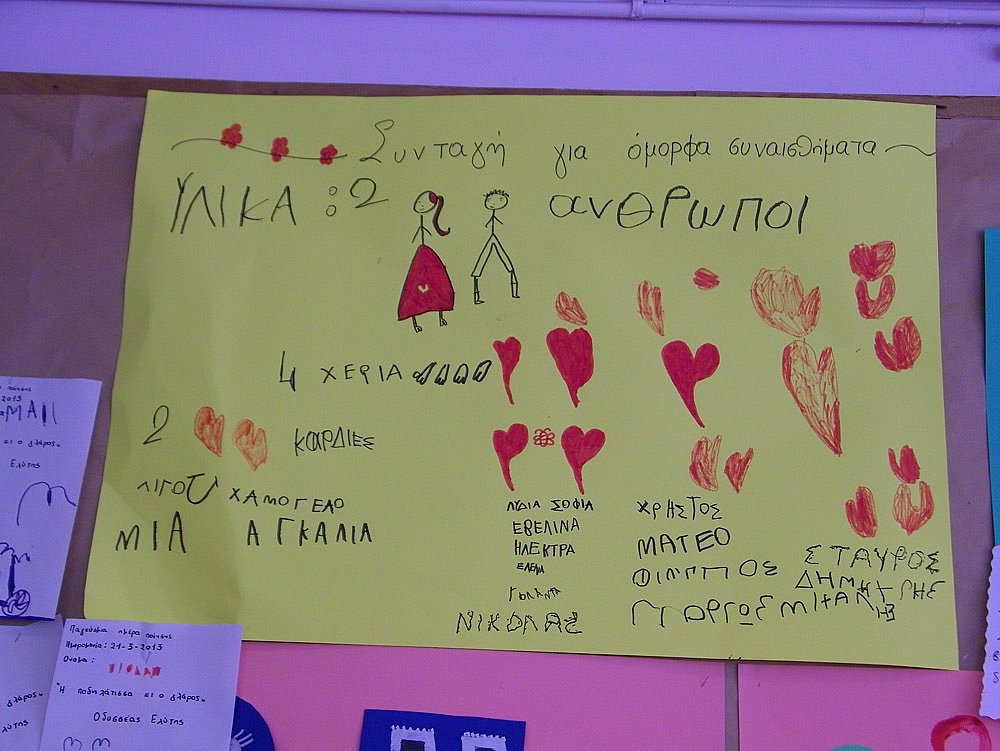 Συνταγή για όμορφα συναισθήματα
ΥΛΙΚΑ : 2 ανθρωποι
4 ΧΕΡΙΑ
2 ΚΑΡΔΙΕΣ
ΛΙΓΟ ΧΑΜΟΓΕΛΟ
ΜΙΑ ΑΓΚΑΛΙΑ
ΛΥΔΙΑ ΣΟΦΙΑ
ΕΒΕΛΙΝΑ
ΗΛΕΚΤΡΑ
ΕΛΕΝΑ
ΝΙΚΟΛΑΣ
ΧΡΗΣΤΟΣ
ΜΑΤΕΟ
ΦΙΛΙΠΠΟΣ
ΣΤΑΥΡΟΣ
ΔΗΜΗΤΡΗΣ
2013
ΜΑΠ
κι ο γλάρος"
Ελύτης
Παγκόσμια ημέρα ποίησης
Ημερομηνία: 21-3-2013
Ονομα:
"Η ποδηλάτισσα κι ο γλάρος"
Οδυσσέας Ελύτης